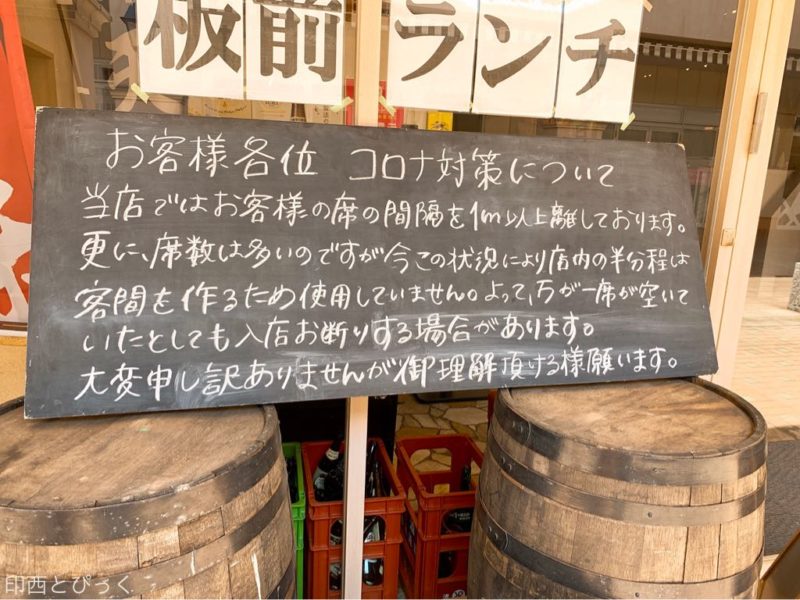 板前 ランチ
お客様各位 コロナ対策について
当店ではお客様の席の間隔を1m以上離しております。
更に、席数は多いのですが今この状況により店内の半分程は
客間を作るため使用していません。よって、万が一席が空いて
いたとしても入店お断りする場合があります。
大変申し訳ありませんが御理解頂ける様願います。
印西とぴっく